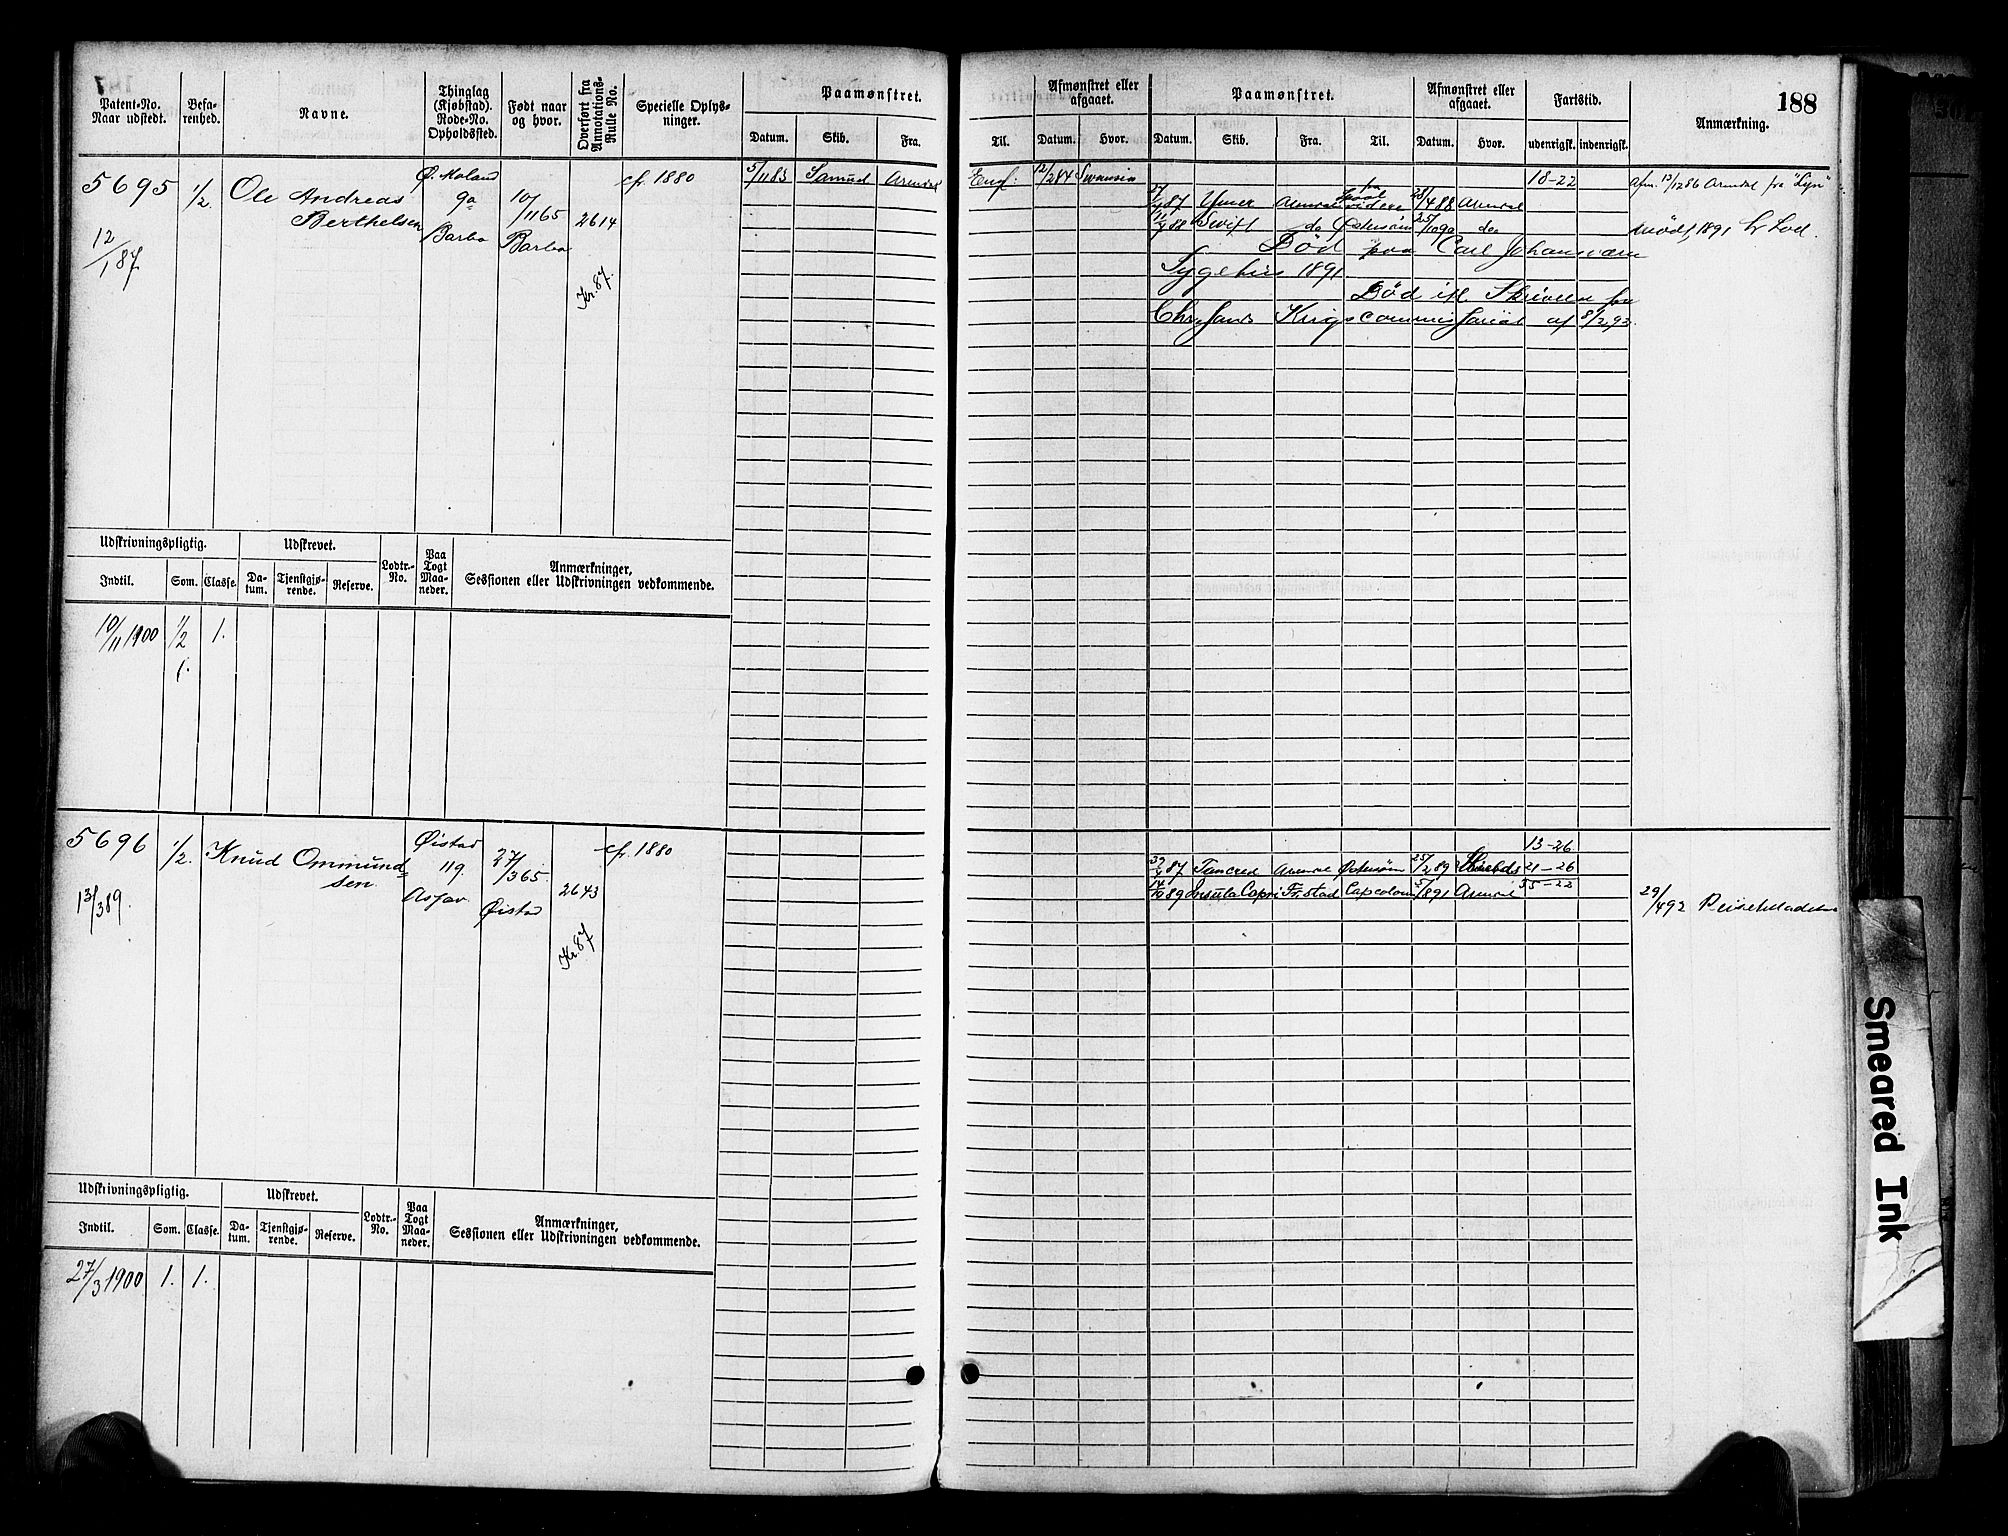 188
Patent-No. Naar udstedt.
Befarenhed.
Navne.
Thinglag (Kjøbstad). Rode-No. Opholdssted.
Født naar og hvor.
Overført fra Annotations-Rulle No.
Specielle Oplysninger.
Paamønstret.
Datum. Skib. Fra.
Til.
Afmønstret eller afgaaet.
Datum. Hvor.
Paamønstret.
Datum. Skib. Fra. Til.
Afmønstret eller afgaaet.
Datum. Hvor.
Fartstid.
udenrigsk. indenrigsk.
Anmærkning.
5695 1/2. Ole Andreas
Berthelsen
12/1 87
Ø. Moland
9a
Barbo
10/11 65
Barbo
2614
Kr. 87.
cfr. 1880
5/11 83 Samuel Arendal
Engl: 12/2 84 Swansea
18-22
Afm. 13/12 86 Arendal fra "Lyn"
27/4 87 Ymer Arendal videre 28/4 88 Arendal
88 Swift do Østersøen 25/10 90 do
Mødt, 1891 Lod.
Død paa Carl Johansværn
Sygehus 1891
Død ifl Skrivelse fra
Chr.sands Krigscommissariat af 8/2 92.
Udskrivningspligtig.
Udskrevet.
Lodtr.-No.
Paa Togt Maaneder.
Anmærkninger,
Sessionen eller Udskrivningen vedkommende.
Indtil. Som. Classe. Datum. Tjenstgjørende. Reserve.
10/11 1900 1/2 1.
1.
5696 1/2. Knud Ommund-
sen
13/3 89.
Øistad
119.
27/3 65
Øistad
2643
Kr. 87
cfr. 1880
13-26
87 Tancred Arendal Østersøen 25/2 89 21-26
14/10 89 Insula Capri Fr.stad 891 Arendal 55-22
29/4 92
Udskrivningspligtig.
Udskrevet.
Lodtr.-No.
Paa Togt Maaneder.
Anmærkninger,
Sessionen eller Udskrivningen vedkommende.
Indtil. Som. Classe. Datum. Tjenstgjørende. Reserve.
27/3 1900 1. 1.
Smeared Ink